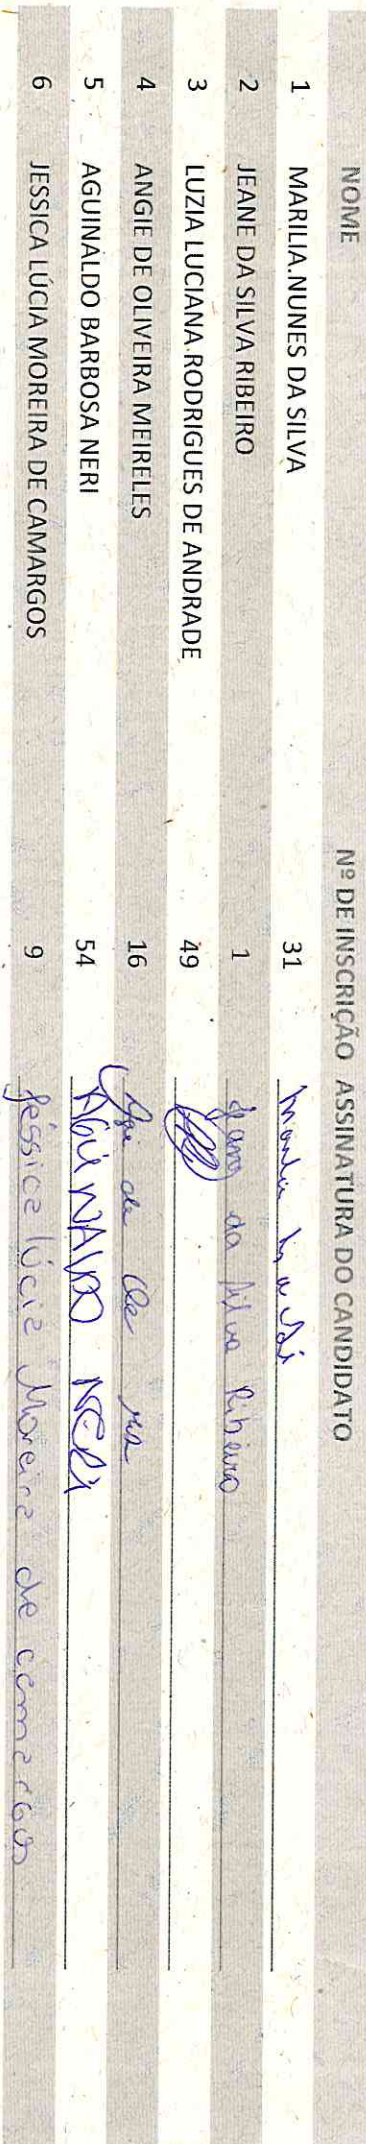 NOME Nº DE INSCRIÇÃO ASSINATURA DO CANDIDATO
1 MARILIA NUNES DA SILVA 31
2 JEANE DA SILVA RIBEIRO 1 da Silva Ribeiro
3 LUZIA LUCIANA RODRIGUES DE ANDRADE 49
4 ANGIE DE OLIVEIRA MEIRELES 16 de
5 AGUINALDO BARBOSA NERI 54 AGUINALDO NERI
6 JESSICA LÚCIA MOREIRA DE CAMARGOS 9 Jéssica lúcia Moreira de camargos